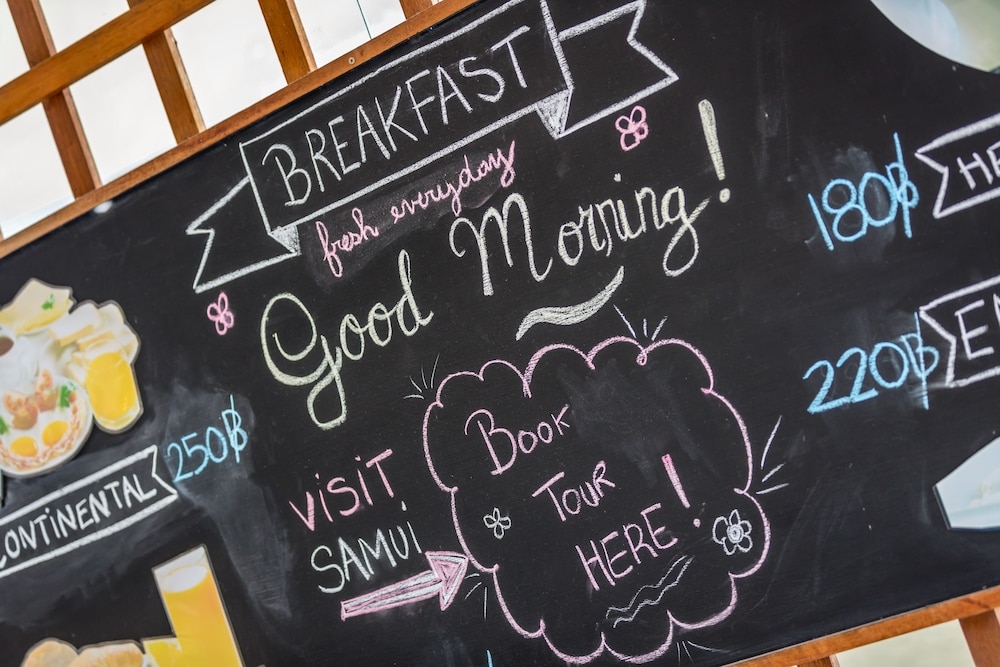 BREAKFAST
fresh everyday
Good Morning!
180฿
220฿
250฿
CONTINENTAL
VISIT
SAMUI
BOOK
TOUR
HERE!